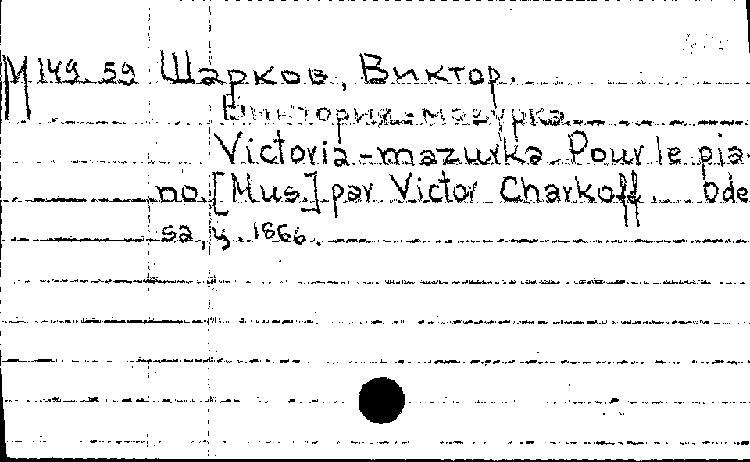 М 149.59 Шарков, Виктор.
Виктория-мазурка
Victoria-mazurka. Pour le pia-
no. [Mus.] par Victor Charkoff. Ode
sa, ц. 1866.